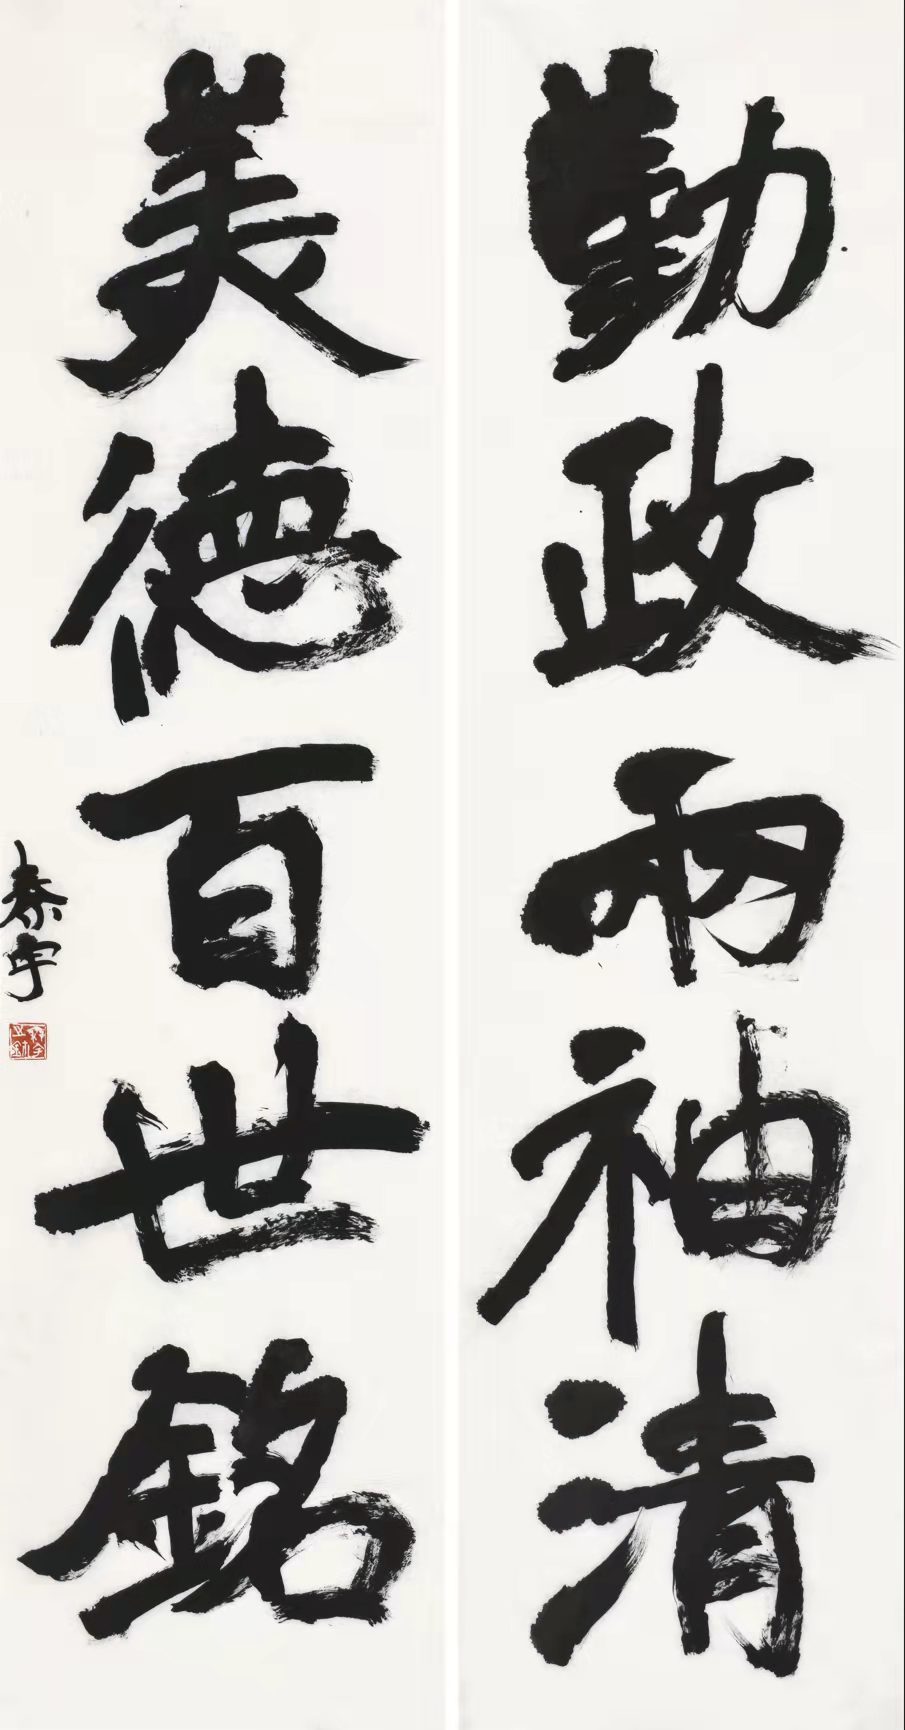 勤政兩袖清
美德百世銘
泰宇